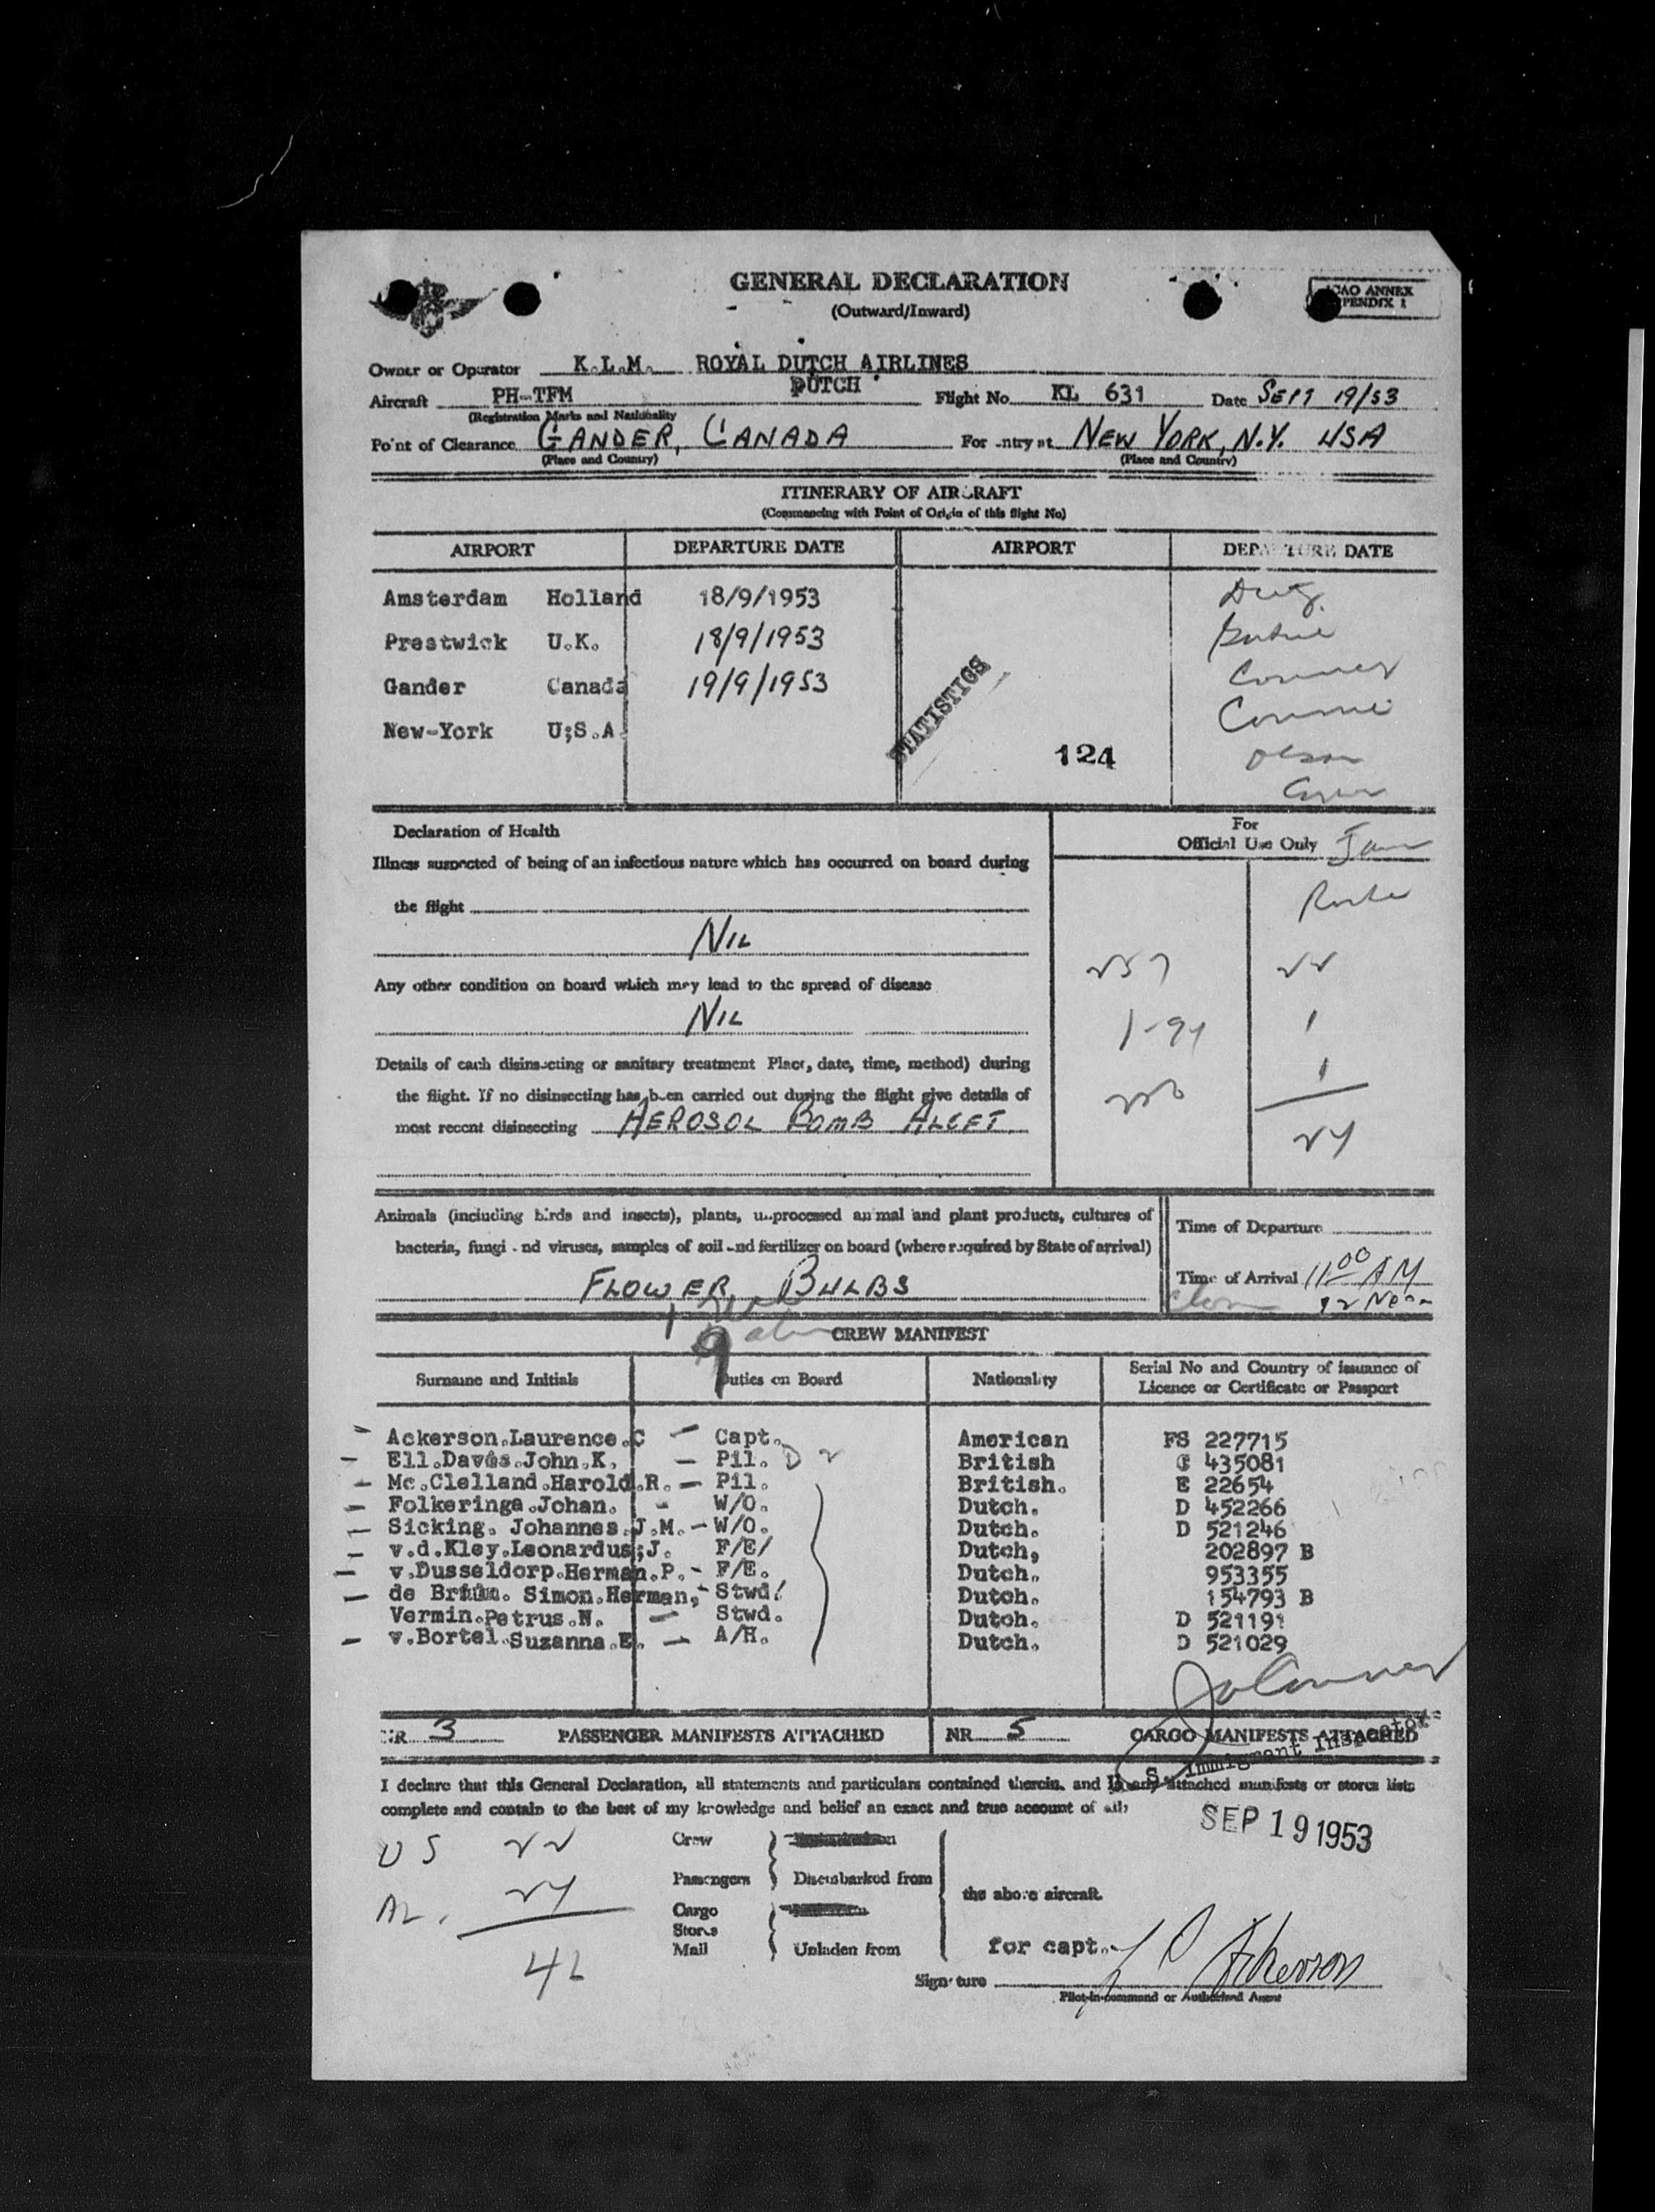 GENERAL DECLARATION
(Outward/Inward)
ICAO ANNEX
APPENDIX 1
Owner or Operator K.L.M. ROYAL DUTCH AIRLINES
Aircraft PH-TFM DUTCH Flight No. KL 631 Date SEPT 19/53
(Registration Marks and Nationality
Point of Clearance GANDER, CANADA For entry at NEW YORK, N.Y. USA
(Place and Country) (Place and Country)
ITINERARY OF AIRCRAFT
(Commencing with Point of Origin of this flight No)
AIRPORT DEPARTURE DATE AIRPORT DEPARTURE DATE
Amsterdam Holland 18/9/1953
Prestwick U.K. 18/9/1953
Gander Canada 19/9/1953
New-York U;S.A.
STATISTICS
124
Olson
Declaration of Health
For
Official Use Only
Illness suspected of being of an infectious nature which has occurred on board during
the flight
NIL
257 22
Any other condition on board which may lead to the spread of disease
NIL
1
Details of each disinsecting or sanitary treatment Place, date, time, method) during
1
the flight. If no disinsecting has been carried out during the flight give details of
most recent disinsecting AEROSOL BOMB
24
Animals (including birds and insects), plants, unprocessed animal and plant products, cultures of
bacteria, fungi and viruses, samples of soil and fertilizer on board (where required by State of arrival)
FLOWER BULBS
Time of Departure
Time of Arrival 11:00 AM
12 Noon
9
CREW MANIFEST
Surname and Initials Duties on Board Nationality Serial No and Country of issuance of
Licence or Certificate or Passport
Ackerson.Laurence.C - Capt. American FS 227715
Ell.Davis.John.K. - Pil. D 2 British C 435081
Mc.Clelland.Harold.R. - Pil. British. E 22654
Folkeringa.Johan. - W/O. Dutch. D 452266
Sicking. Johannes.J.M. - W/O. Dutch. D 521246
v.d.Kley.Leonardus;J. F/E/ Dutch, 202897 B
v.Dusseldorp.Herman.P. - F/E. Dutch. 953355
de Bruin. Simon.Herman, - Stwd. Dutch. 154793 B
Vermin.Petrus.N. - Stwd. Dutch. D 521191
v.Bortel.Suzanna.E. - A/H. Dutch. D 521029
NR 3 PASSENGER MANIFESTS ATTACHED NR 5 CARGO MANIFESTS ATTACHED
Immigrant Inspector
I declare that this General Declaration, all statements and particulars contained therein, and in any attached manifests or stores lists
complete and contain to the best of my knowledge and belief an exact and true account of all:
SEP 19 1953
US 22
AL. 24
Crew
Passengers Disembarked from
the above aircraft.
Cargo
Stores
Mail Unladen from
for capt. L C Ackerson
Signature
Pilot-in-command or Authorised Agent